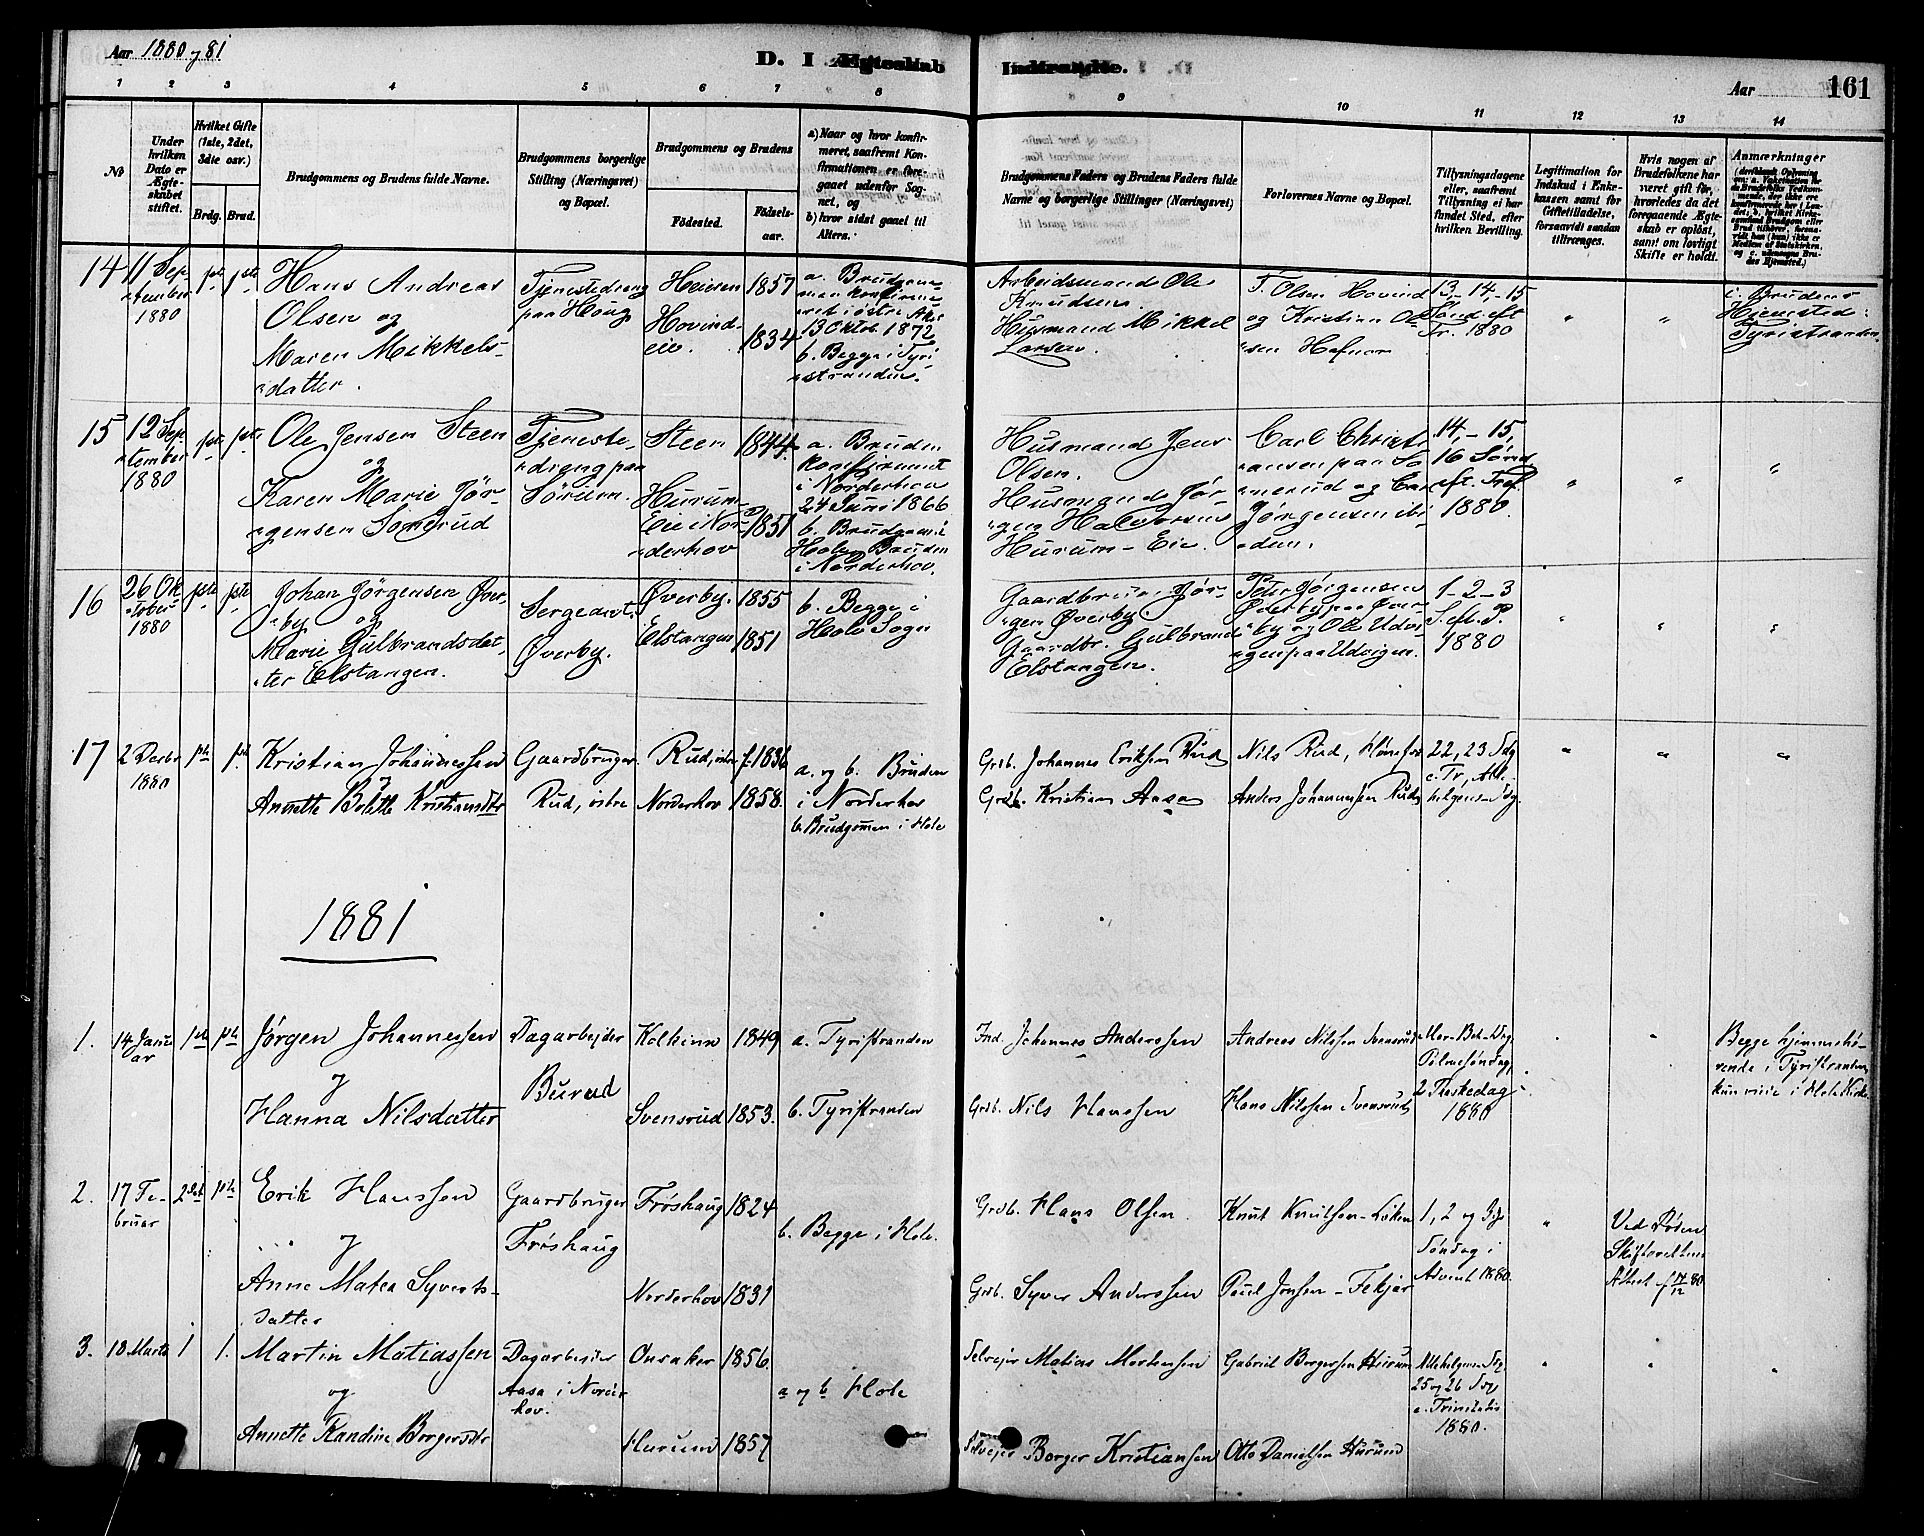 Aar 1880 og 81
D. I Ægteskab Indtraadte.
Aar
161
1 2 3 4 5 6 7 8 9 10 11 12 13 14
No
Under hvilken Dato er Ægteskabet stiftet.
Hvilket Gifte (1ste, 2det, 3die osv.)
Brdg. Brud.
Brudgommens og Brudens fulde Navne.
Brudgommens borgerlige Stilling (Næringsvei) og Bopæl.
Brudgommens og Brudens
Födested.
Födselsaar.
a) Naar og hvor konfirmeret, saafremt Konfirmationen er foregaaet udenfor Sognet, og
b) hvor sidst gaaet til Alters.
Brudgommens Faders og Brudens Faders fulde Navne og borgerlige Stillinger (Næringsvei)
Forlovernes Navne og Bopæl.
Tillysningsdagene eller, saafremt Tillysning ei har fundet Sted, efter hvilken Bevilling.
Legitimation for Indskud i Enkekassen samt for Giftetilladelse, forsaavidt saadan tiltrænges.
Hvis nogen af Brudefolkene har været gift för, hvorledes da det foregaaende Ægteskab er oplöst, samt om lovligt Skifte er holdt.
Anmærkninger
14
11 Sep-
tember
1880
Hans Andreas
Olsen og
Maren Mikkels-
datter.
Tjenestedreng
paa Houg
1857
Hovind-
eie.
1834
a. Brudgom-
men konfirme-
ret i östre Aker
13 Oktob. 1872
b. Begge i Tyri-
stranden.
Arbeidsmand Ole
Knudsen.
Husmand Mikkel
Larsen.
T. Olsen Hovind
og Kristian Ol-
sen Hafnor
13,-14,-15
Sönd. eft
Tr. 1880
c. Brudens
Hjemsted:
Tyristranden.
15
12 Sep-
tember
1880
Ole Jensen Steen
og
Karen Marie Jör-
gensen Sonerud
Tjeneste-
dreng paa
Sörum.
Steen
1844
Hurum-
Eie i Nor-
derhov
1851
a. Bruden
konfirmeret
i Norderhov
24 Juni 1866
b. Brudgom i
Hole, Bruden
i Norderhov.
Husmand Jens
Olsen.
Husmand Jör-
gen Halvorsen
Hurum-Eie.
Carl Christi-
ansen paa So-
nerud og Carl
Jörgensen ibi-
dem.
14,-15,
16 Sönd
eft. Tref.
1880.
16
26 Ok-
tober
1880
1ste
1ste
Johan Jörgensen Över-
by og
Marie Gulbrandsdat-
ter Elstangen.
Sergeant.
Överby.
Överby.
1855
Elstangen
1851
b. Begge i
Hole Sogn
Gaardbruger Jör-
gen Överby
Gaardbr. Gulbrand
Elstangen.
Peter Jörgensen
Överby paa Över-
by og Ole Udvi-
gen paa Udvigen.
1-2-3
S. eft. P.
1880
17
2 Decbr
1880
Kristian Johannessen
og
Annette Bolette Kristiansdtr
Gaardbruger
Rud, östre
Rud, östre
f. 1836
Norderhov
1858.
a. og b. Bruden
i Norderhov
b. Brudgommen i Hole
Grdb. Johannes Eriksen Rud
Grdb. Kristian Aasa
Nils Rud, Hönefos
Anders Johannessen Rud
22, 23 Sdg
e. Tr, Alle-
helgens-Sdg.
1881
1.
14 Janu-
ar
Jørgen Johannessen
og
Hanna Nilsdatter
Dagarbejder
Burud
1849
Svensrud
1853.
a. Tyristranden
b. Tyristranden
Ind. Johannes Anderssen
Grdb. Nils Hanssen
Andreas Nilssen Svensrud
Hans Nilssen Svensrud
Mar-Beb-Dag
Palmesöndag,
2 Paaskedag
1880
Begge hjemmehö-
rende i Tyristranden,
kun viede i Hole Kirke
2.
17 Fe-
bruar
2det
Erik Hanssen
og
Anne Matea Syverts-
datter
Gaardbruger
Fröshaug
Fröshaug
1824
Norderhov
1831
b. Begge i Hole.
Grdb. Hans Olsen.
Grdb. Syver Anderssen
Knut Knutsen-Löken
Paul Jonsen-Fekjær
1, 2 og 3die
Söndag i
Advent 1880.
Ved Döden
3.
18 Marts
1
1.
Martin Matiassen
og
Annette Randine Borgersdtr
Dagarbejder
Aasa i Norder-
hov.
Onsaker
1856.
Hurum
1857
a og b Hole
Selvejer Matias Mortensen
Selvejer Borger Kristiansen
Gabriel Borgersen Hurum
Otto Danielsen Hurum
Allehelgens-Sdg.
25 og 26 Sdg
e. Trinitatis
1880.